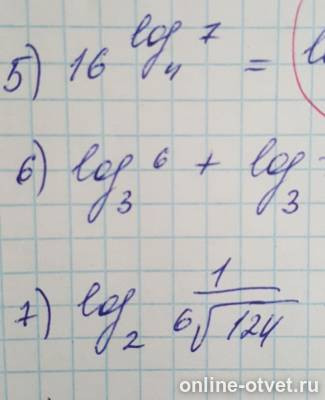 5) 16^log₄ 7 =
6) log₃ 6 + log₃
7) log₂ 1/⁶√124
online-otvet.ru